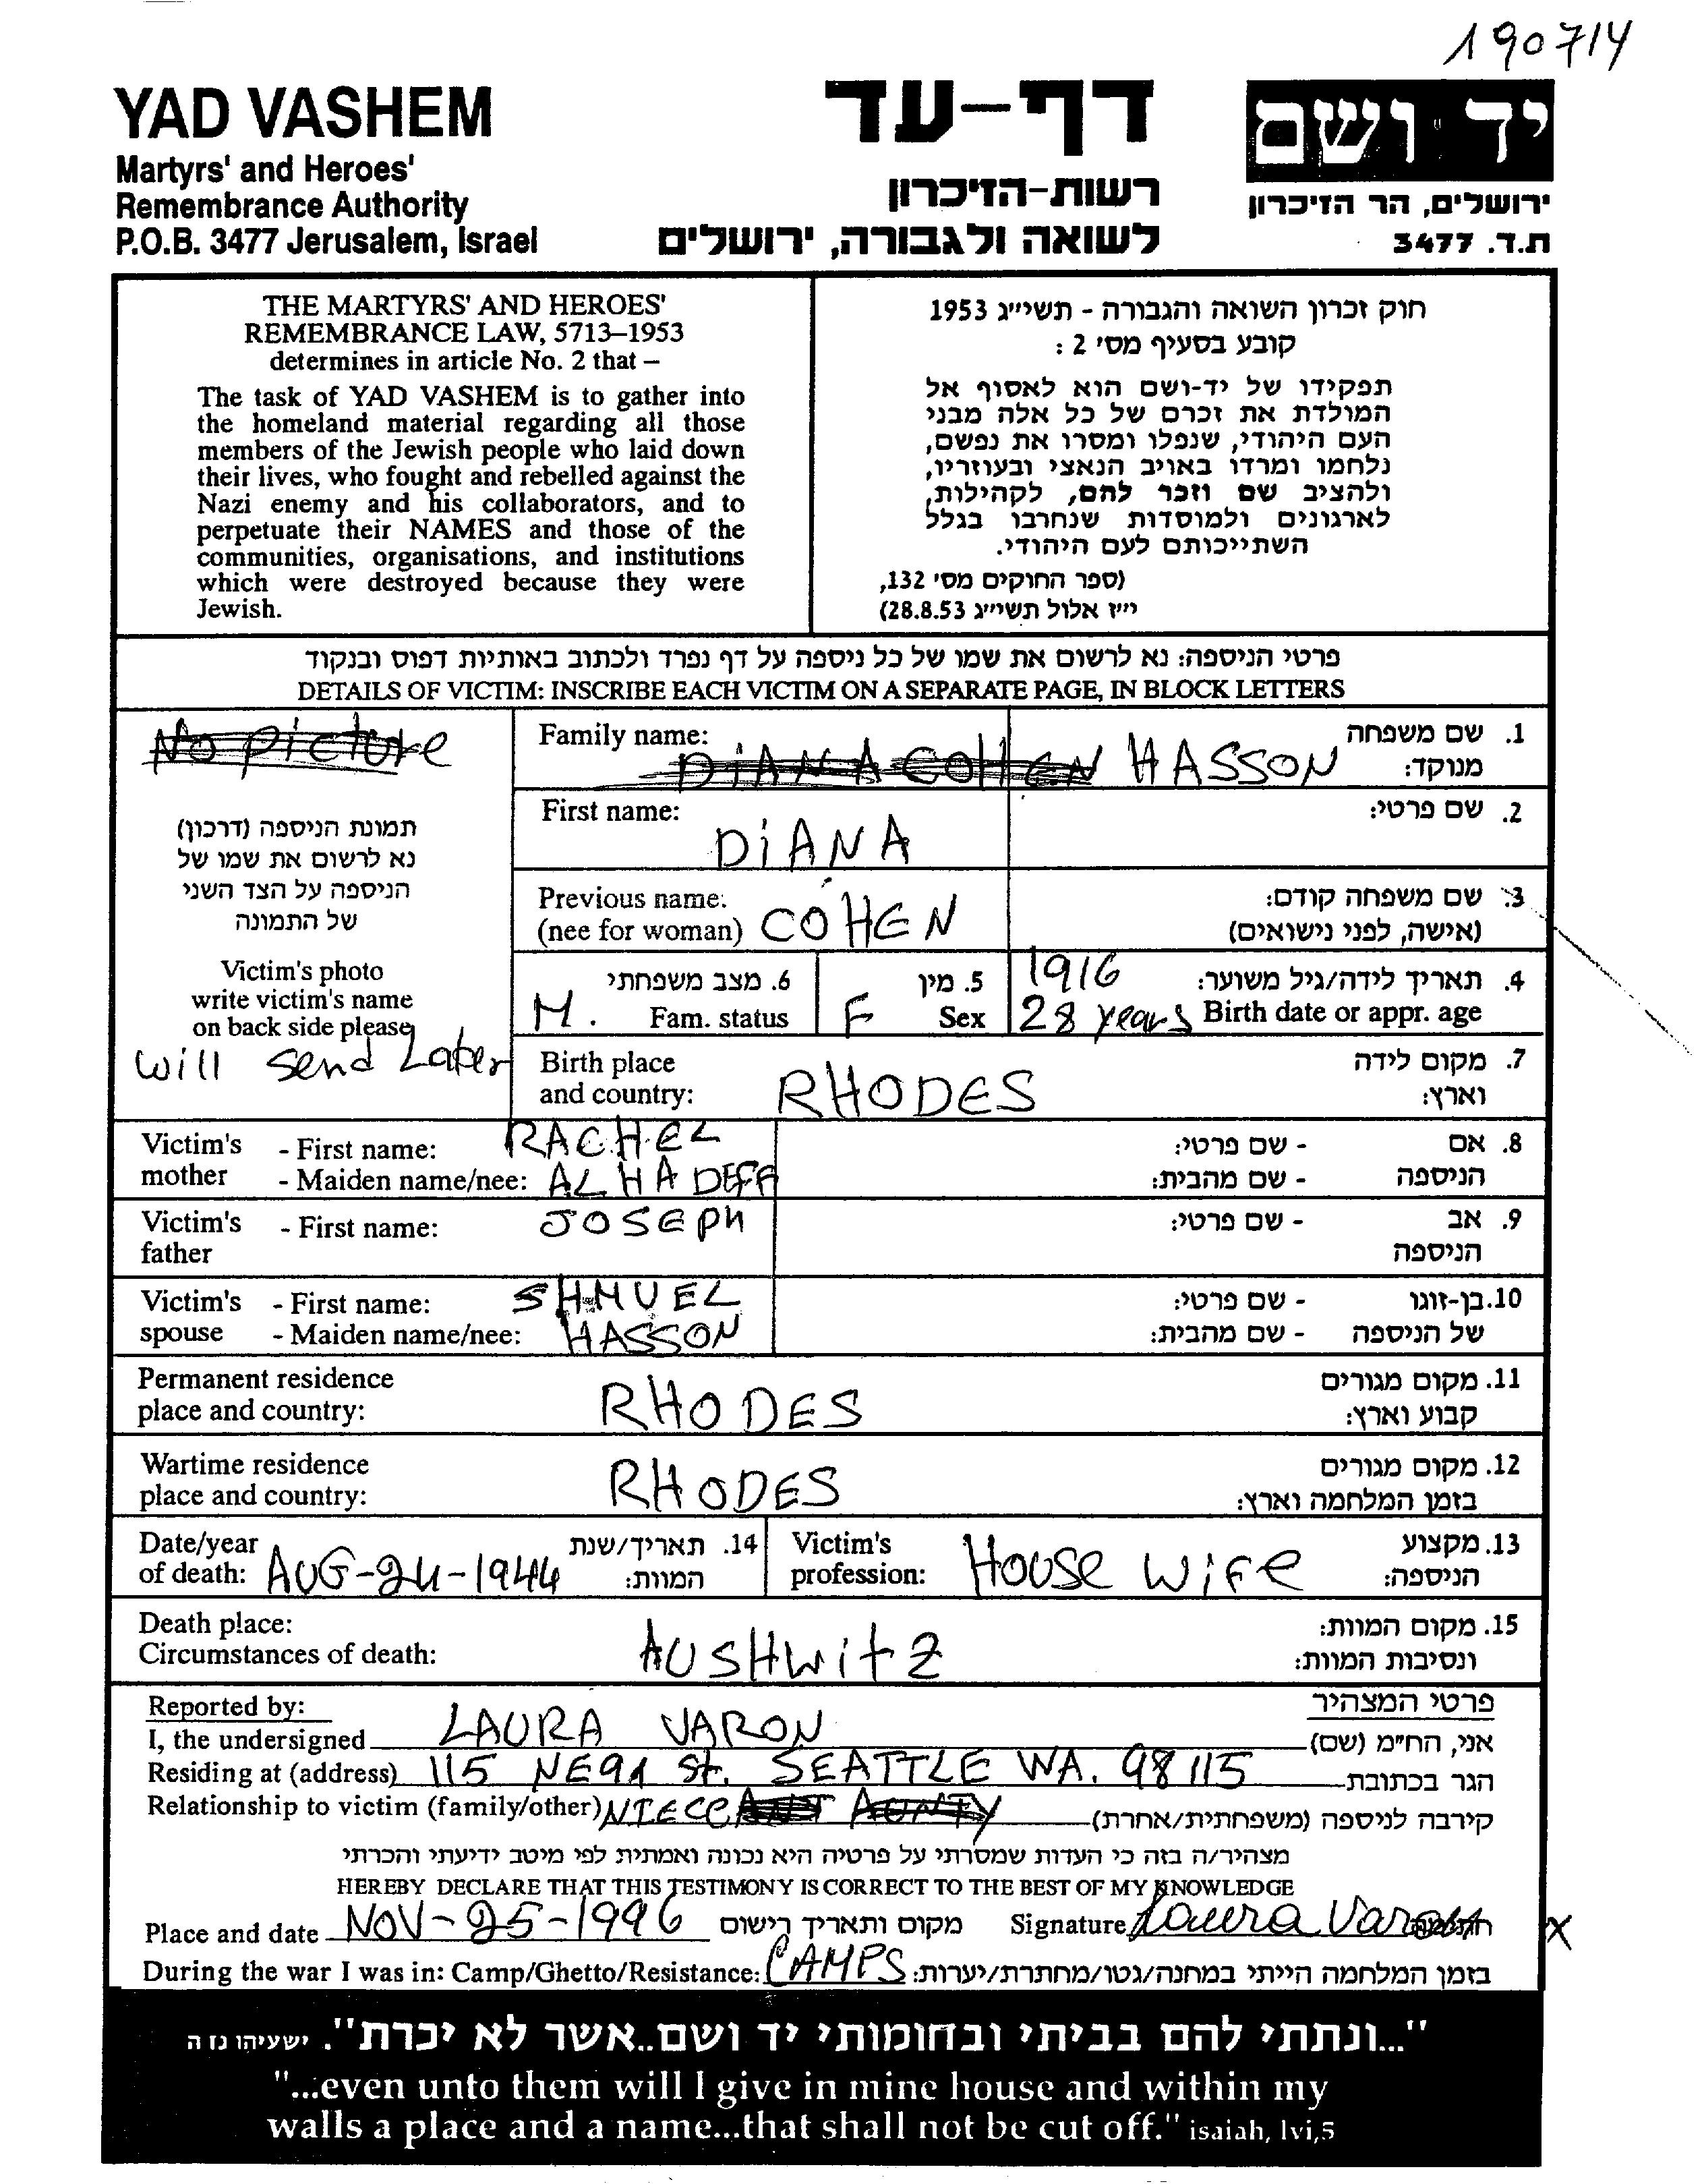 190714
YAD VASHEM
Martyrs' and Heroes'
Remembrance Authority
P.O.B. 3477 Jerusalem, Israel
דף-עד
רשות-הזיכרון
לשואה ולגבורה, ירושלים
יד ושם
ירושלים, הר הזיכרון
ת.ד. 3477
THE MARTYRS' AND HEROES'
REMEMBRANCE LAW, 5713–1953
determines in article No. 2 that –
The task of YAD VASHEM is to gather into
the homeland material regarding all those
members of the Jewish people who laid down
their lives, who fought and rebelled against the
Nazi enemy and his collaborators, and to
perpetuate their NAMES and those of the
communities, organisations, and institutions
which were destroyed because they were
Jewish.
חוק זכרון השואה והגבורה - תשי״ג 1953
קובע בסעיף מס׳ 2 :
תפקידו של יד-ושם הוא לאסוף אל
המולדת את זכרם של כל אלה מבני
העם היהודי, שנפלו ומסרו את נפשם,
נלחמו ומרדו באויב הנאצי ובעוזריו,
ולהציב שם וזכר להם, לקהילות,
לארגונים ולמוסדות שנחרבו בגלל
השתייכותם לעם היהודי.
(ספר החוקים מס׳ 132,
י״ז אלול תשי״ג 28.8.53)
פרטי הניספה: נא לרשום את שמו של כל ניספה על דף נפרד ולכתוב באותיות דפוס ובנקוד
DETAILS OF VICTIM: INSCRIBE EACH VICTIM ON A SEPARATE PAGE, IN BLOCK LETTERS
No picture
תמונת הניספה (דרכון)
נא לרשום את שמו של
הניספה על הצד השני
של התמונה
Victim's photo
write victim's name
on back side please
will send Later
Family name: DIANA COHEN HASSON 1. שם משפחה
מנוקד:
First name: DiANA 2. שם פרטי:
Previous name: 3. שם משפחה קודם:
(nee for woman) COHEN (אישה, לפני נישואים)
M. 6. מצב משפחתי Fam. status
F 5. מין Sex
1916 4. תאריך לידה/גיל משוער:
28 years Birth date or appr. age
Birth place 7. מקום לידה
and country: RHODES וארץ:
Victim's - First name: RACHEL - שם פרטי: 8. אם
mother - Maiden name/nee: ALHADEFF - שם מהבית: הניספה
Victim's - First name: JOSEPH - שם פרטי: 9. אב
father הניספה
Victim's - First name: SHMUEL - שם פרטי: 10. בן-זוגו
spouse - Maiden name/nee: HASSON - שם מהבית: של הניספה
Permanent residence 11. מקום מגורים
place and country: RHODES קבוע וארץ:
Wartime residence 12. מקום מגורים
place and country: RHODES בזמן המלחמה וארץ:
Date/year 14. תאריך/שנת
of death: AUG-24-1944 המוות:
Victim's 13. מקצוע
profession: HOUSE WiFE הניספה:
Death place: 15. מקום המוות:
Circumstances of death: AUSHWitZ ונסיבות המוות:
Reported by: פרטי המצהיר
I, the undersigned LAURA VARON אני, הח״מ (שם)
Residing at (address) 115 NE 91 St. SEATTLE WA. 98115 הגר בכתובת
Relationship to victim (family/other) NIECE AUNTY קירבה לניספה (משפחתית/אחרת)
מצהיר/ה בזה כי העדות שמסרתי על פרטיה היא נכונה ואמתית לפי מיטב ידיעתי והכרתי
HEREBY DECLARE THAT THIS TESTIMONY IS CORRECT TO THE BEST OF MY KNOWLEDGE
Place and date NOV-25-1996 מקום ותאריך רישום Signature Laura Varon X
During the war I was in: Camp/Ghetto/Resistance: CAMPS בזמן המלחמה הייתי במחנה/גטו/מחתרת/יערות:
"...ונתתי להם בביתי ובחומותי יד ושם..אשר לא יכרת". ישעיהו נז ה
"...even unto them will I give in mine house and within my
walls a place and a name...that shall not be cut off." isaiah, lvi,5